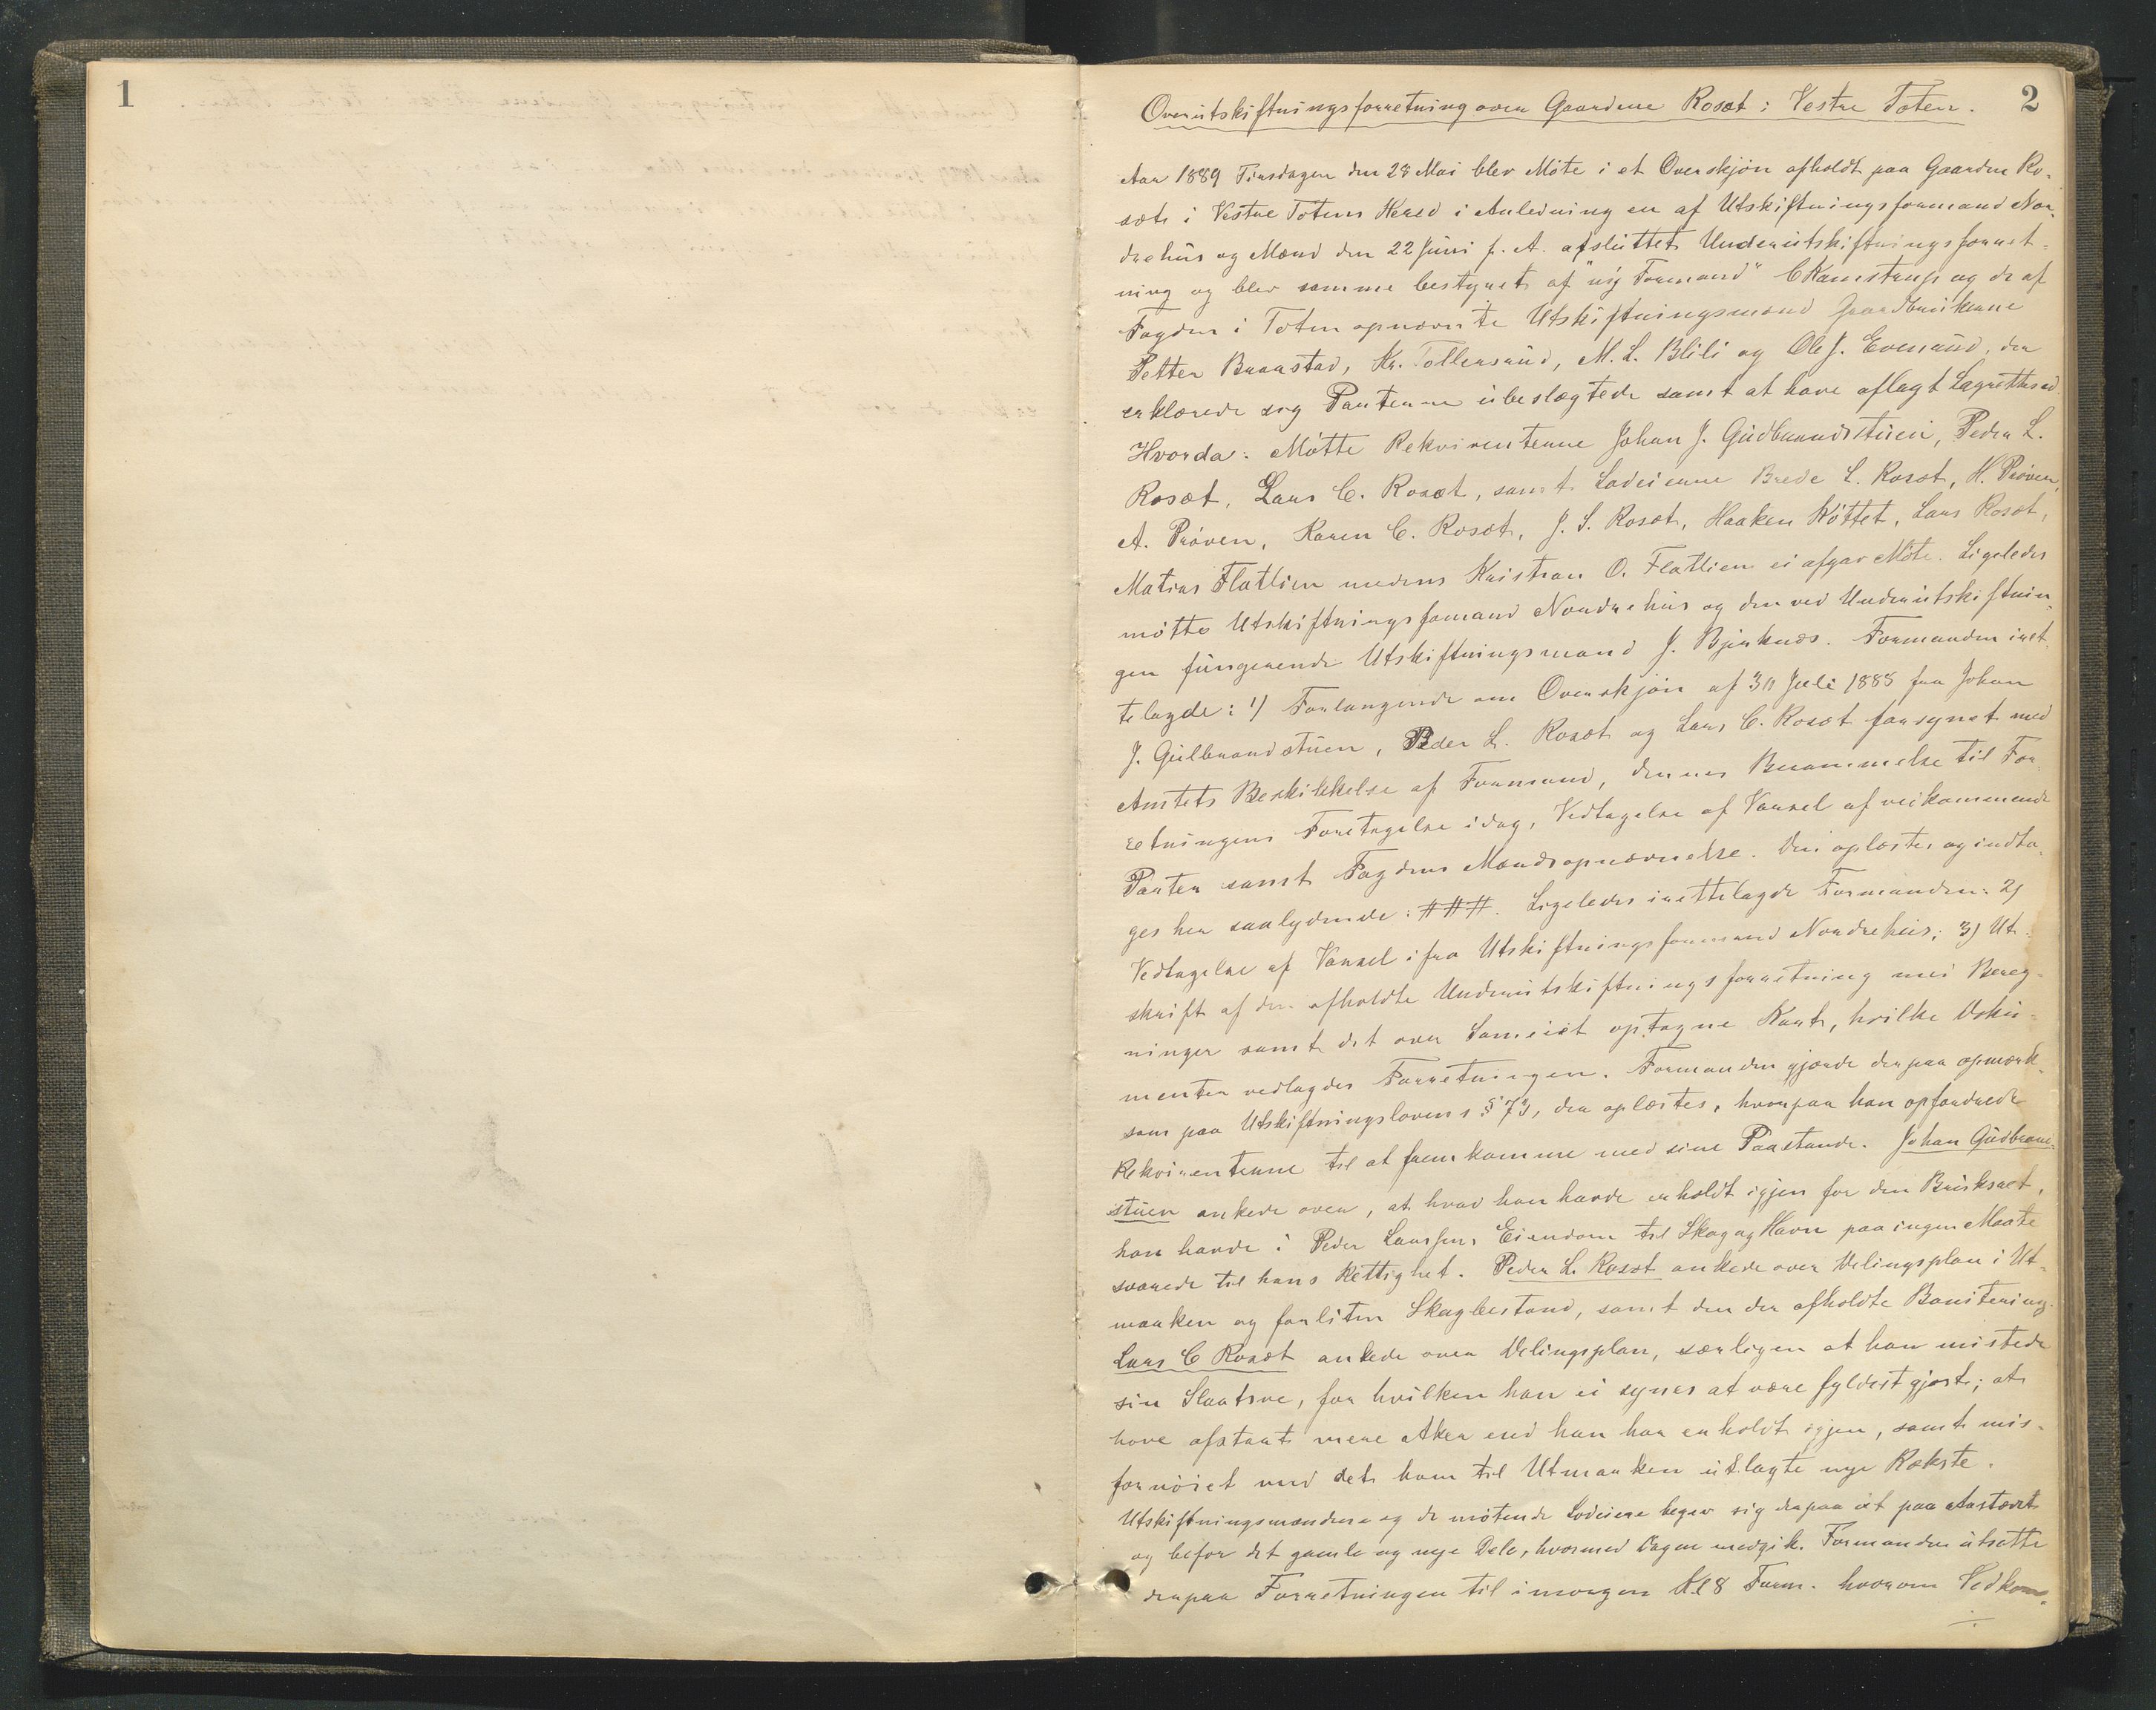 1
2
Overutskiftningsforretning over Gaardene Rosæt i Vestre Toten.
Aar 1889 Tirsdagen den 28 Mai blev Möte i et Overskjön afholdt paa Gaarden Ro-
sæt i Vestre Totens Hered i Anledning en af Utskiftningsformand Nor-
drehus og Mænd den 22 Juni f. A. afsluttet Underutskiftningsforret-
ning og blev samme bestyret af "ny Formand" C Kamstrup og de af
Fogden i Toten opnævnte Utskiftningsmænd Gaardbrukerne
Petter Braastad, Kr. Tollersrud, M. L. Blili og Ole J. Evenrud, der
erklærede sig Parterne ubeslægtede samt at have aflagt Lagrettesed.
Hvorda: Mötte Rekvirenterne Johan J. Gudbrandsstuen, Peder L.
Rosæt, Lars C. Rosæt, samt Lodeierne Brede L. Rosæt, H. Pröven,
A. Pröven, Karen C. Rosæt, J. S. Rosæt, Haaken Köttet, Lars Rosæt,
Matias Flatlien medens Kristian O. Flatlien ei afgav Möte. Ligeledes
mötte Utskiftningsfomand Nordrehus og den ved Underutskiftnin-
gen fungerende Utskiftningsmand J. Bjerknæs. Formanden iret-
telagde: 1) Forlangende om Overskjön af 30 Juli 1888 fra Johan
J. Gulbrandstuen, Peder L. Rosæt og Lars C. Rosæt forsynet med
Amtets Beskikkelse af Formand, dennes Berammelse til For-
retningens Foretagelse idag, Vedtagelse af Varsel af veikommende
Parter samt Fogdens Mændsopnævnelse. Dei oplæstes og indta-
ges her saalydende: ###. Ligeledes irettelagde Formanden: 2)
Vedtagelse af Varsel ifra Utskiftningsformand Nordrehus; 3) Ut-
skrift af den afholdte Underutskiftningsforretning mei Bereg-
ninger samt det over Sameiet optagne Kart, hvilke Doku-
menter vedlagdes Forretningen. Formanden gjorde derpaa opmærk-
som paa Utskiftningslovens § 73, der oplæstes, hvorpaa han opfordrede
Rekvirenterne til at fremkomme med sine Paastande. Johan Gudbrand-
stuen ankede over, at hvad han havde erholdt igjen for den Bruksret,
han havde i Peder Larssens Eiendom til Skog og Havn paa ingen Maate
svarede til hans Rettighet. Peder L. Rosæt ankede over Delingsplan i Ut-
marken og forliten Skogbestand, samt den der afholdte Bonitering.
Lars C Rosæt ankede over Delingsplan, særligen at han mistede
sin Slaatsve, for hvilken han ei synes at være fyldestgjort; at
have afstaat mere Aker end han har erholdt igjen, samt mis-
fornöiet med det ham til Utmarken utlagte nye Rækste.
Utskiftningsmændene og de mötende Lodeiere begav sig derpaa ut paa Aastedet
og befor det gamle og nye Dele, hvormed Dagen medgik. Formanden utsatte
derpaa Forretningen til imorgen Kl 8 Form. hvorom Vedkom-